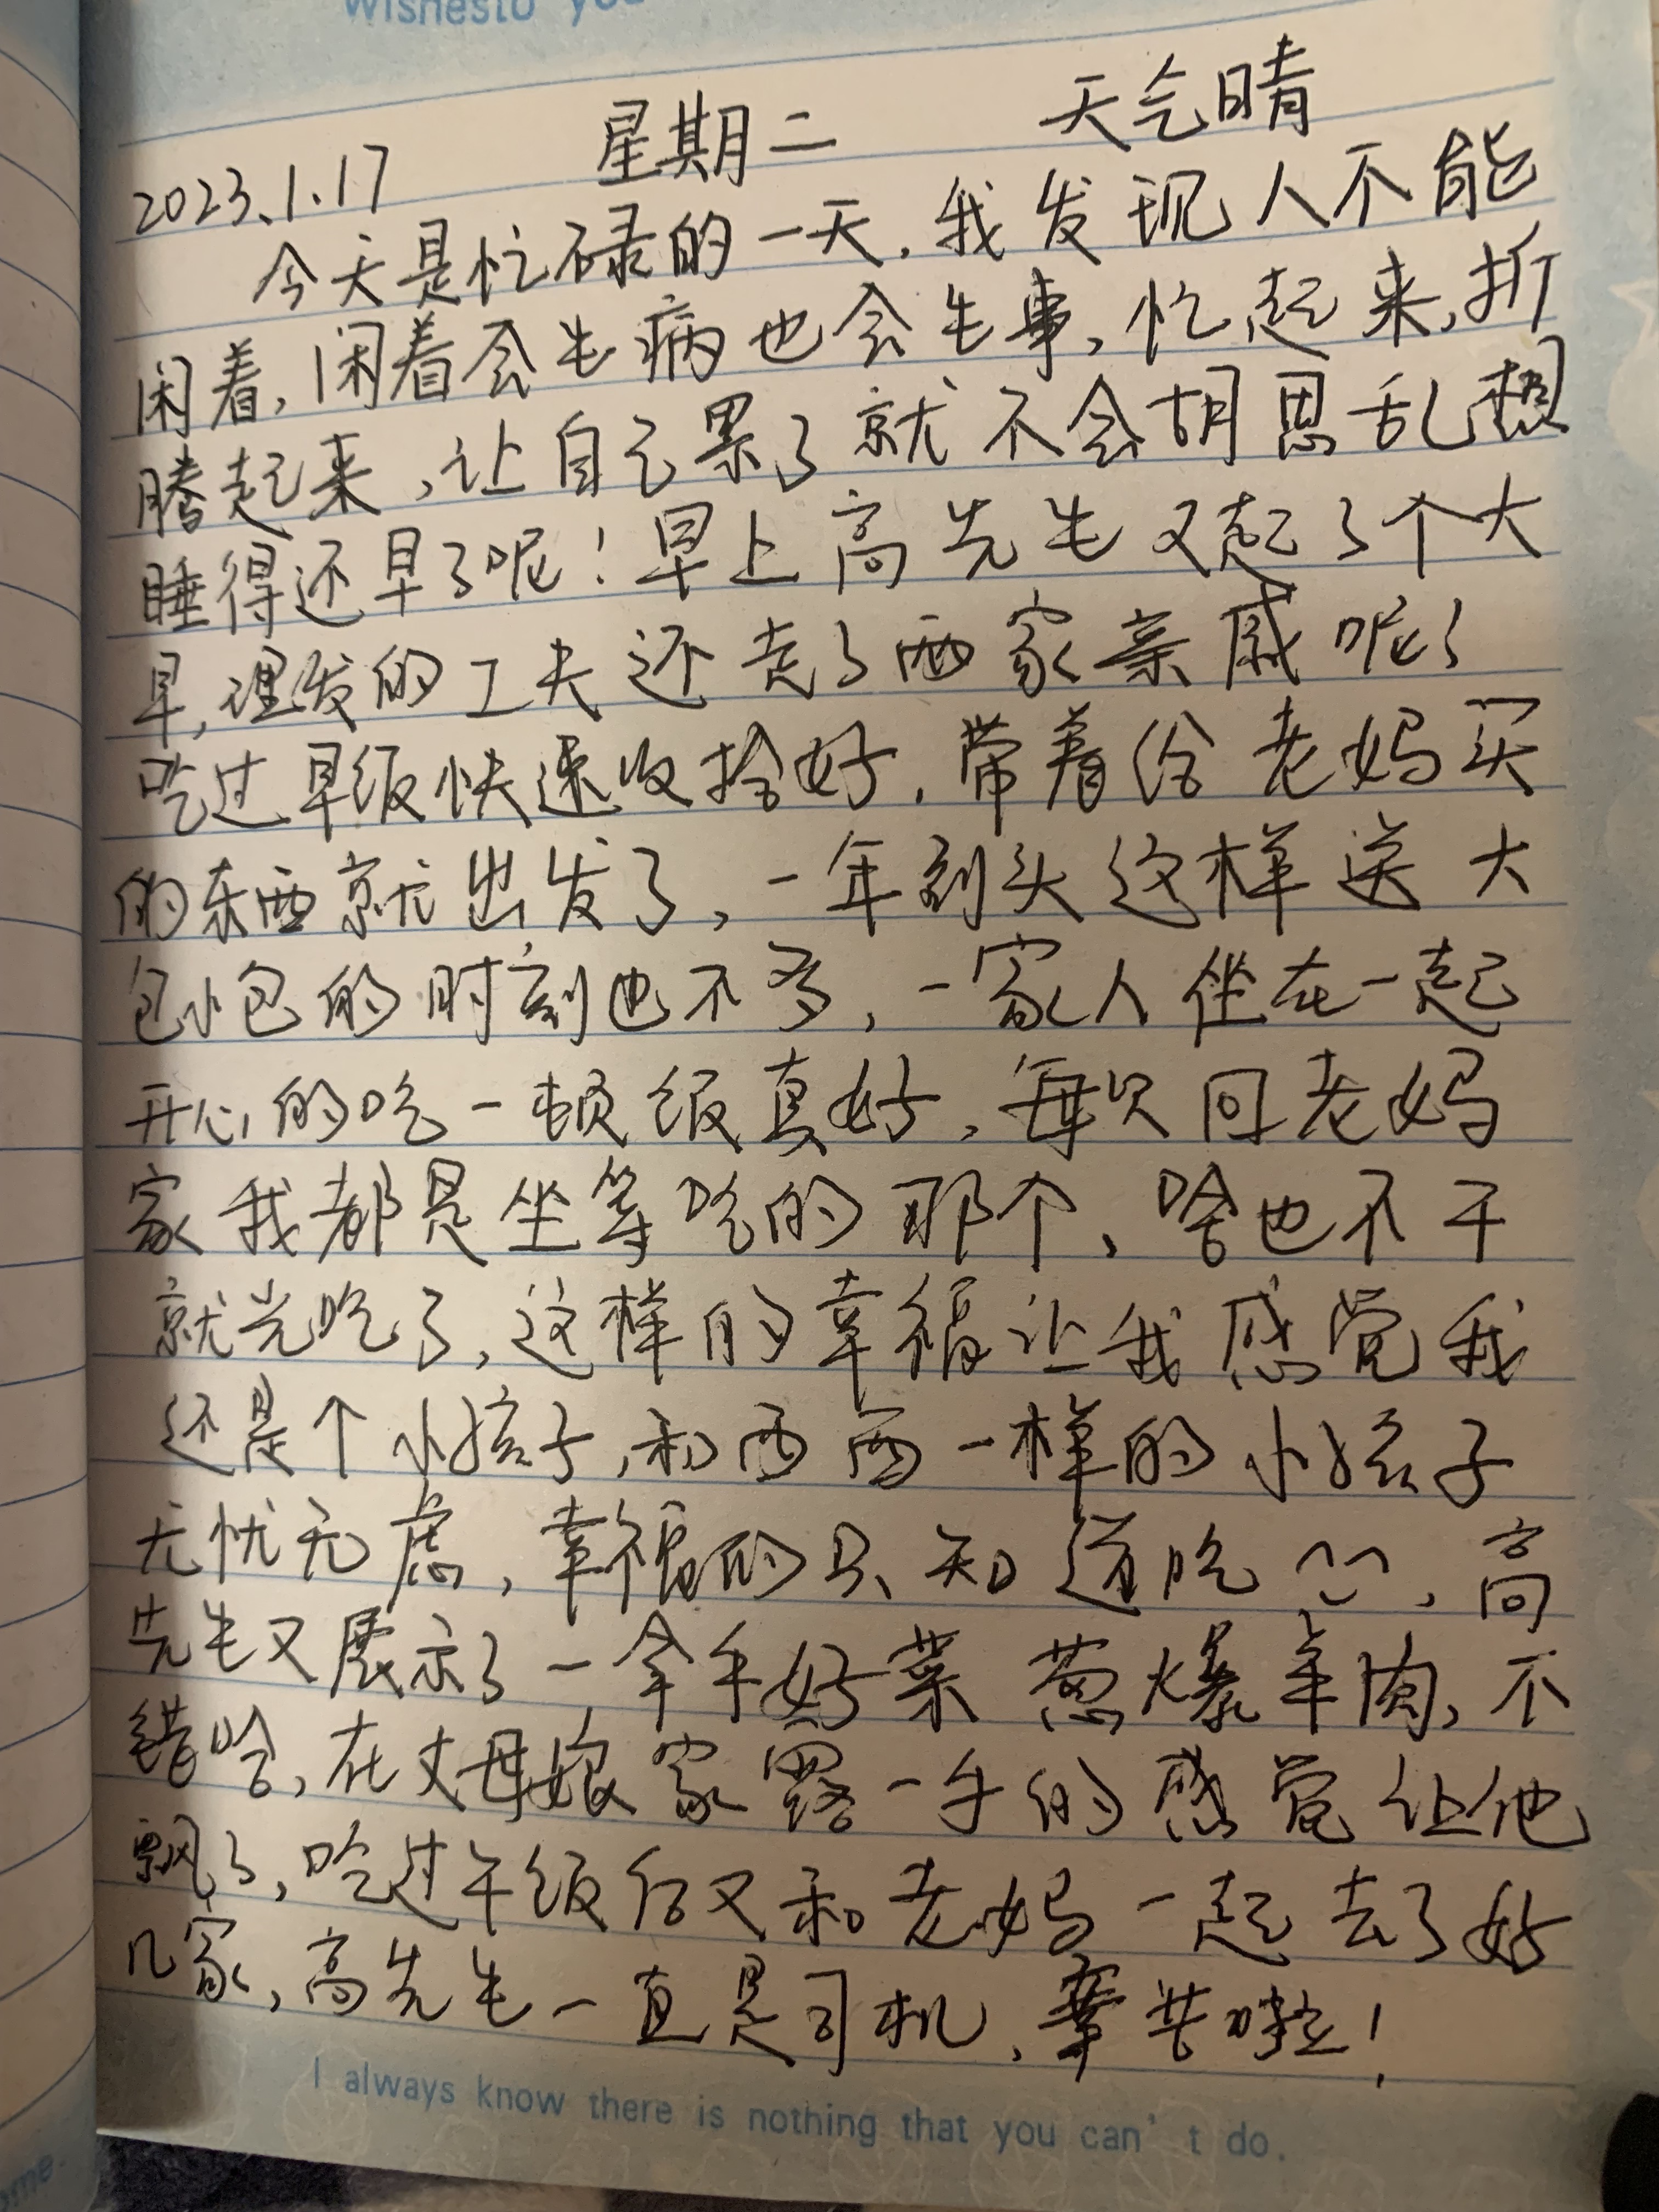 Wishesto you
2023.1.17 星期二 天气晴
今天是忙碌的一天,我发现人不能
闲着,闲着会生病也会生事,忙起来,折
腾起来,让自己累了就不会胡思乱想
睡得还早了呢!早上高先生又起了个大
早,理发的工夫还走了两家亲戚呢了
吃过早饭快速收拾好,带着给老妈买
的东西就出发了,一年到头这样送大
包小包的时刻也不多,一家人坐在一起
开心的吃一顿饭真好,每次回老妈
家我都是坐等吃的那个,啥也不干
就光吃了,这样的幸福让我感觉我
还是个小孩子,和西西一样的小孩子
无忧无虑,幸福的只知道吃,高
先生又展示了一拿手好菜葱爆羊肉,不
错哈,在丈母娘家露一手的感觉让他
飘了,吃过午饭后又和老妈一起去了好
几家,高先生一直是司机,辛苦啦!
I always know there is nothing that you can't do.